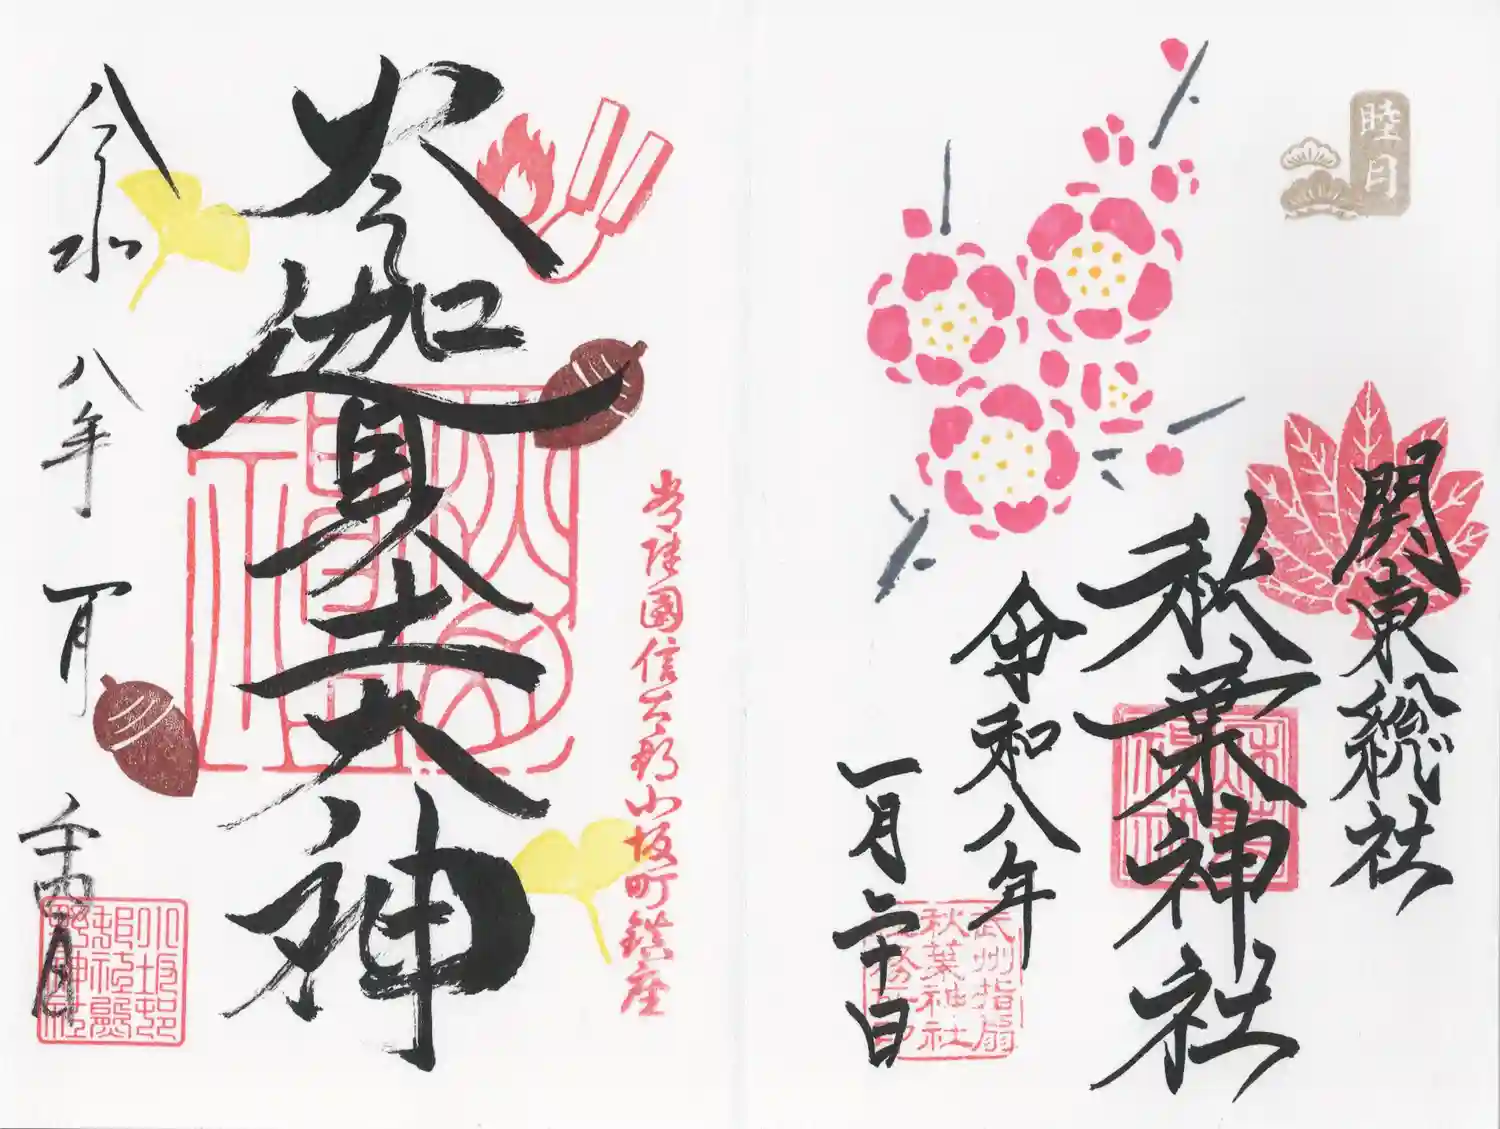 睦月
関東総社
秋葉神社
令和八年
一月二十日
武州指扇
秋葉神社
社務所印
常陸國信太郡小坂町鎮座
火之迦具土大神
令和
八年
一月
小坂邨